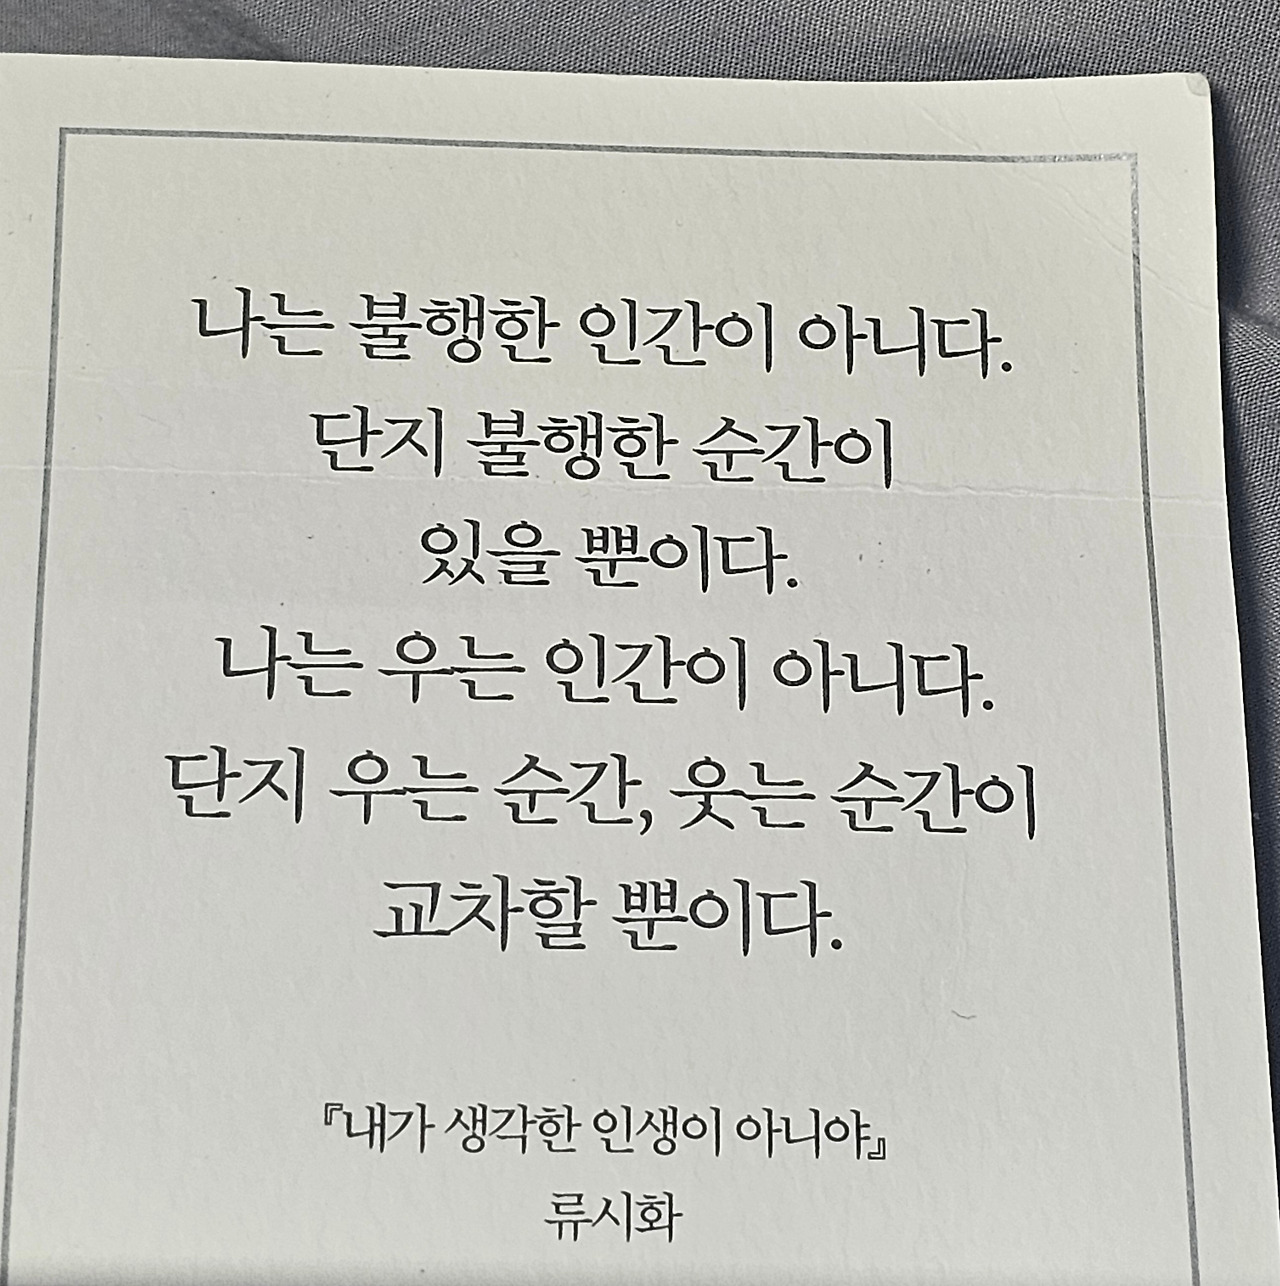 나는 불행한 인간이 아니다.
단지 불행한 순간이
있을 뿐이다.
나는 우는 인간이 아니다.
단지 우는 순간, 웃는 순간이
교차할 뿐이다.
『내가 생각한 인생이 아니야』
류시화